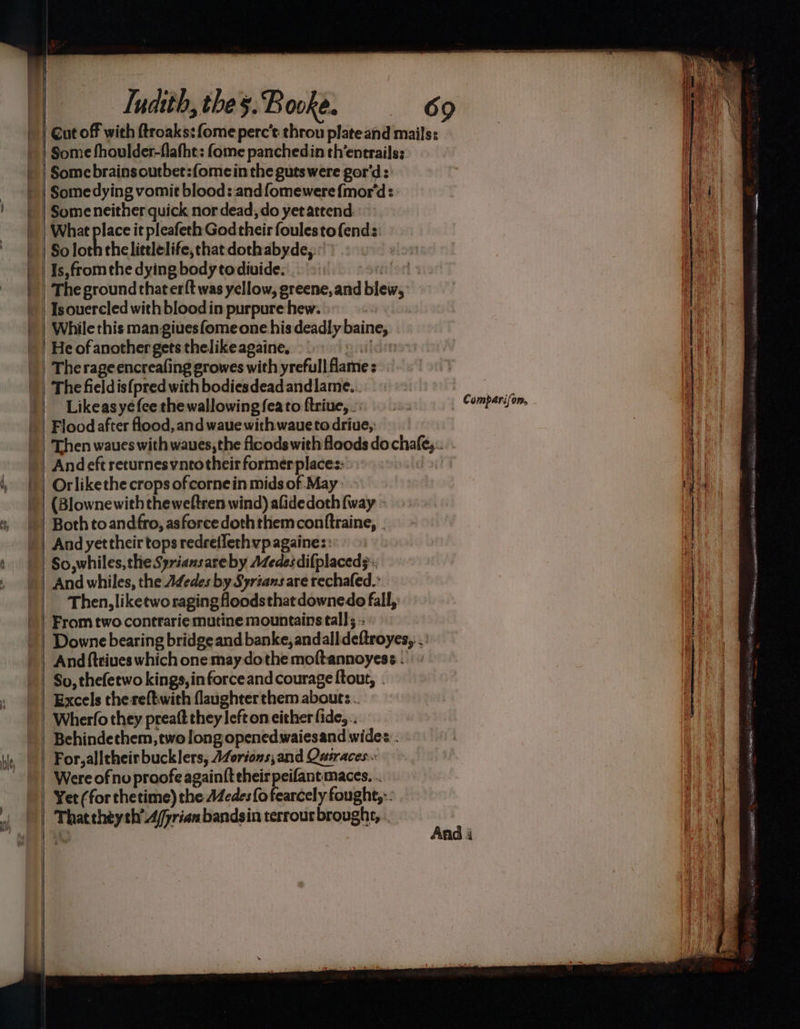 Iudith, the 5. Booke. 69
Cut off with ſtroaks: ſome perc't throu plate and mails:
Some ſhoulder-ſlaſht: ſome panched in th'entrails:
Some brains outbet: ſome in the guts were gor'd:
Some dying vomit blood: and ſome were ſmor'd:
Some neither quick nor dead, do yet attend
What place it pleaſeth God their ſoules to ſend:
So loth the little life, that doth abyde,
Is, from the dying body to diuide.
The ground that erſt was yellow, greene, and blew,
Is ouercled with blood in purpure hew.
While this man giues ſome one his deadly baine,
He of another gets the like againe.
The rage encreaſing growes with yrefull flame:
The field is ſpred with bodies dead and lame.
Like as ye ſee the wallowing ſea to ſtriue,
Compariſon.
Flood after flood, and waue with waue to driue,
Then waues with waues, the floods with floods do chaſe,
And eft returnes vnto their former place:
Or like the crops of corne in mids of May
(Blowne with the weſtren wind) aſide doth ſway
Both to and fro, as force doth them conſtraine,
And yet their tops redreſſeth vp againe:
So, whiles, the Syrians are by Medes diſplaced;
And whiles, the Medes by Syrians are rechaſed.
Then, like two raging floods that downe do fall,
From two contrarie mutine mountains tall;
Downe bearing bridge and banke, and all deſtroyes,
And ſtriues which one may do the moſt annoyes:
So, theſe two kings, in force and courage ſtout,
Excels the reſt with ſlaughter them about:
Wherſo they preaſt they left on either ſide,
Behinde them, two long opened waies and wide:
For, all their bucklers, Morions, and Quiraces
Were of no proofe againſt their peiſant maces.
Yet (for the time) the Medes ſo fearcely fought,
That they th' Aſſyrian bands in terrour brought,
And